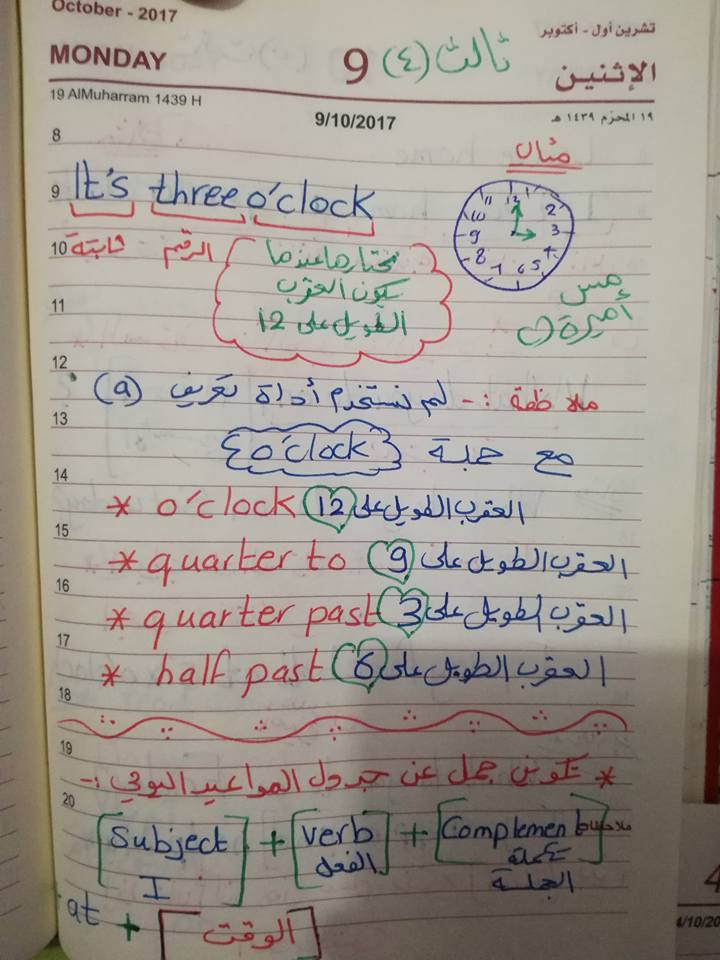 October - 2017
تشرين أول - أكتوبر
MONDAY 9 ثالث (٤) الإثنين
19 AlMuharram 1439 H
9/10/2017
١٩ المحرّم ١٤٣٩ هـ
8
مثال
9 It's three o'clock
12 1 2 3 4 5 6 7 8 9 10 11
10 ثابتة الرقم نختارها عندما
يكون العقرب
11
الطويل على 12
مس
أميرة
12
ملاحظة :- لم نستخدم أداة تعريف (a)
13
مع جملة {o'clock}
14
* o'clock العقرب الطويل على 12
15
* quarter to العقرب الطويل على 9
16
* quarter past العقرب الطويل على 3
17
* half past العقرب الطويل على 6
18
19
* تكوين جمل عن جدول المواعيد اليومي :-
20
[Subject] + [verb] + [Complement]
I الفعل تكملة
الجملة
at + [الوقت]
4
4/10/20